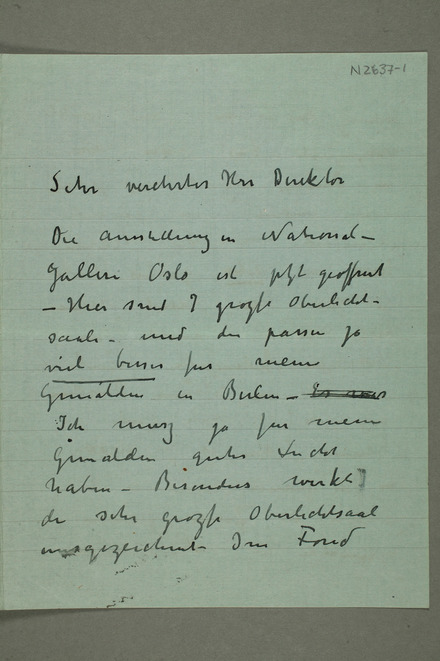 N2637-1
Sehr verehrter Herr Direktor
Die Ausstellung in National-
Gallerie Oslo ist jetzt geöffnet
- Hier sind 7 grozse Oberlicht-
saale - und die passen ja
viel besser fur meine
Gemalden in Berlin -
Ich musz ja fur meine
Gemalden gutes Licht
haben - Besonders wirkt
der sehr grozse Oberlichtsaal
ausgezeichnet - Im Fond